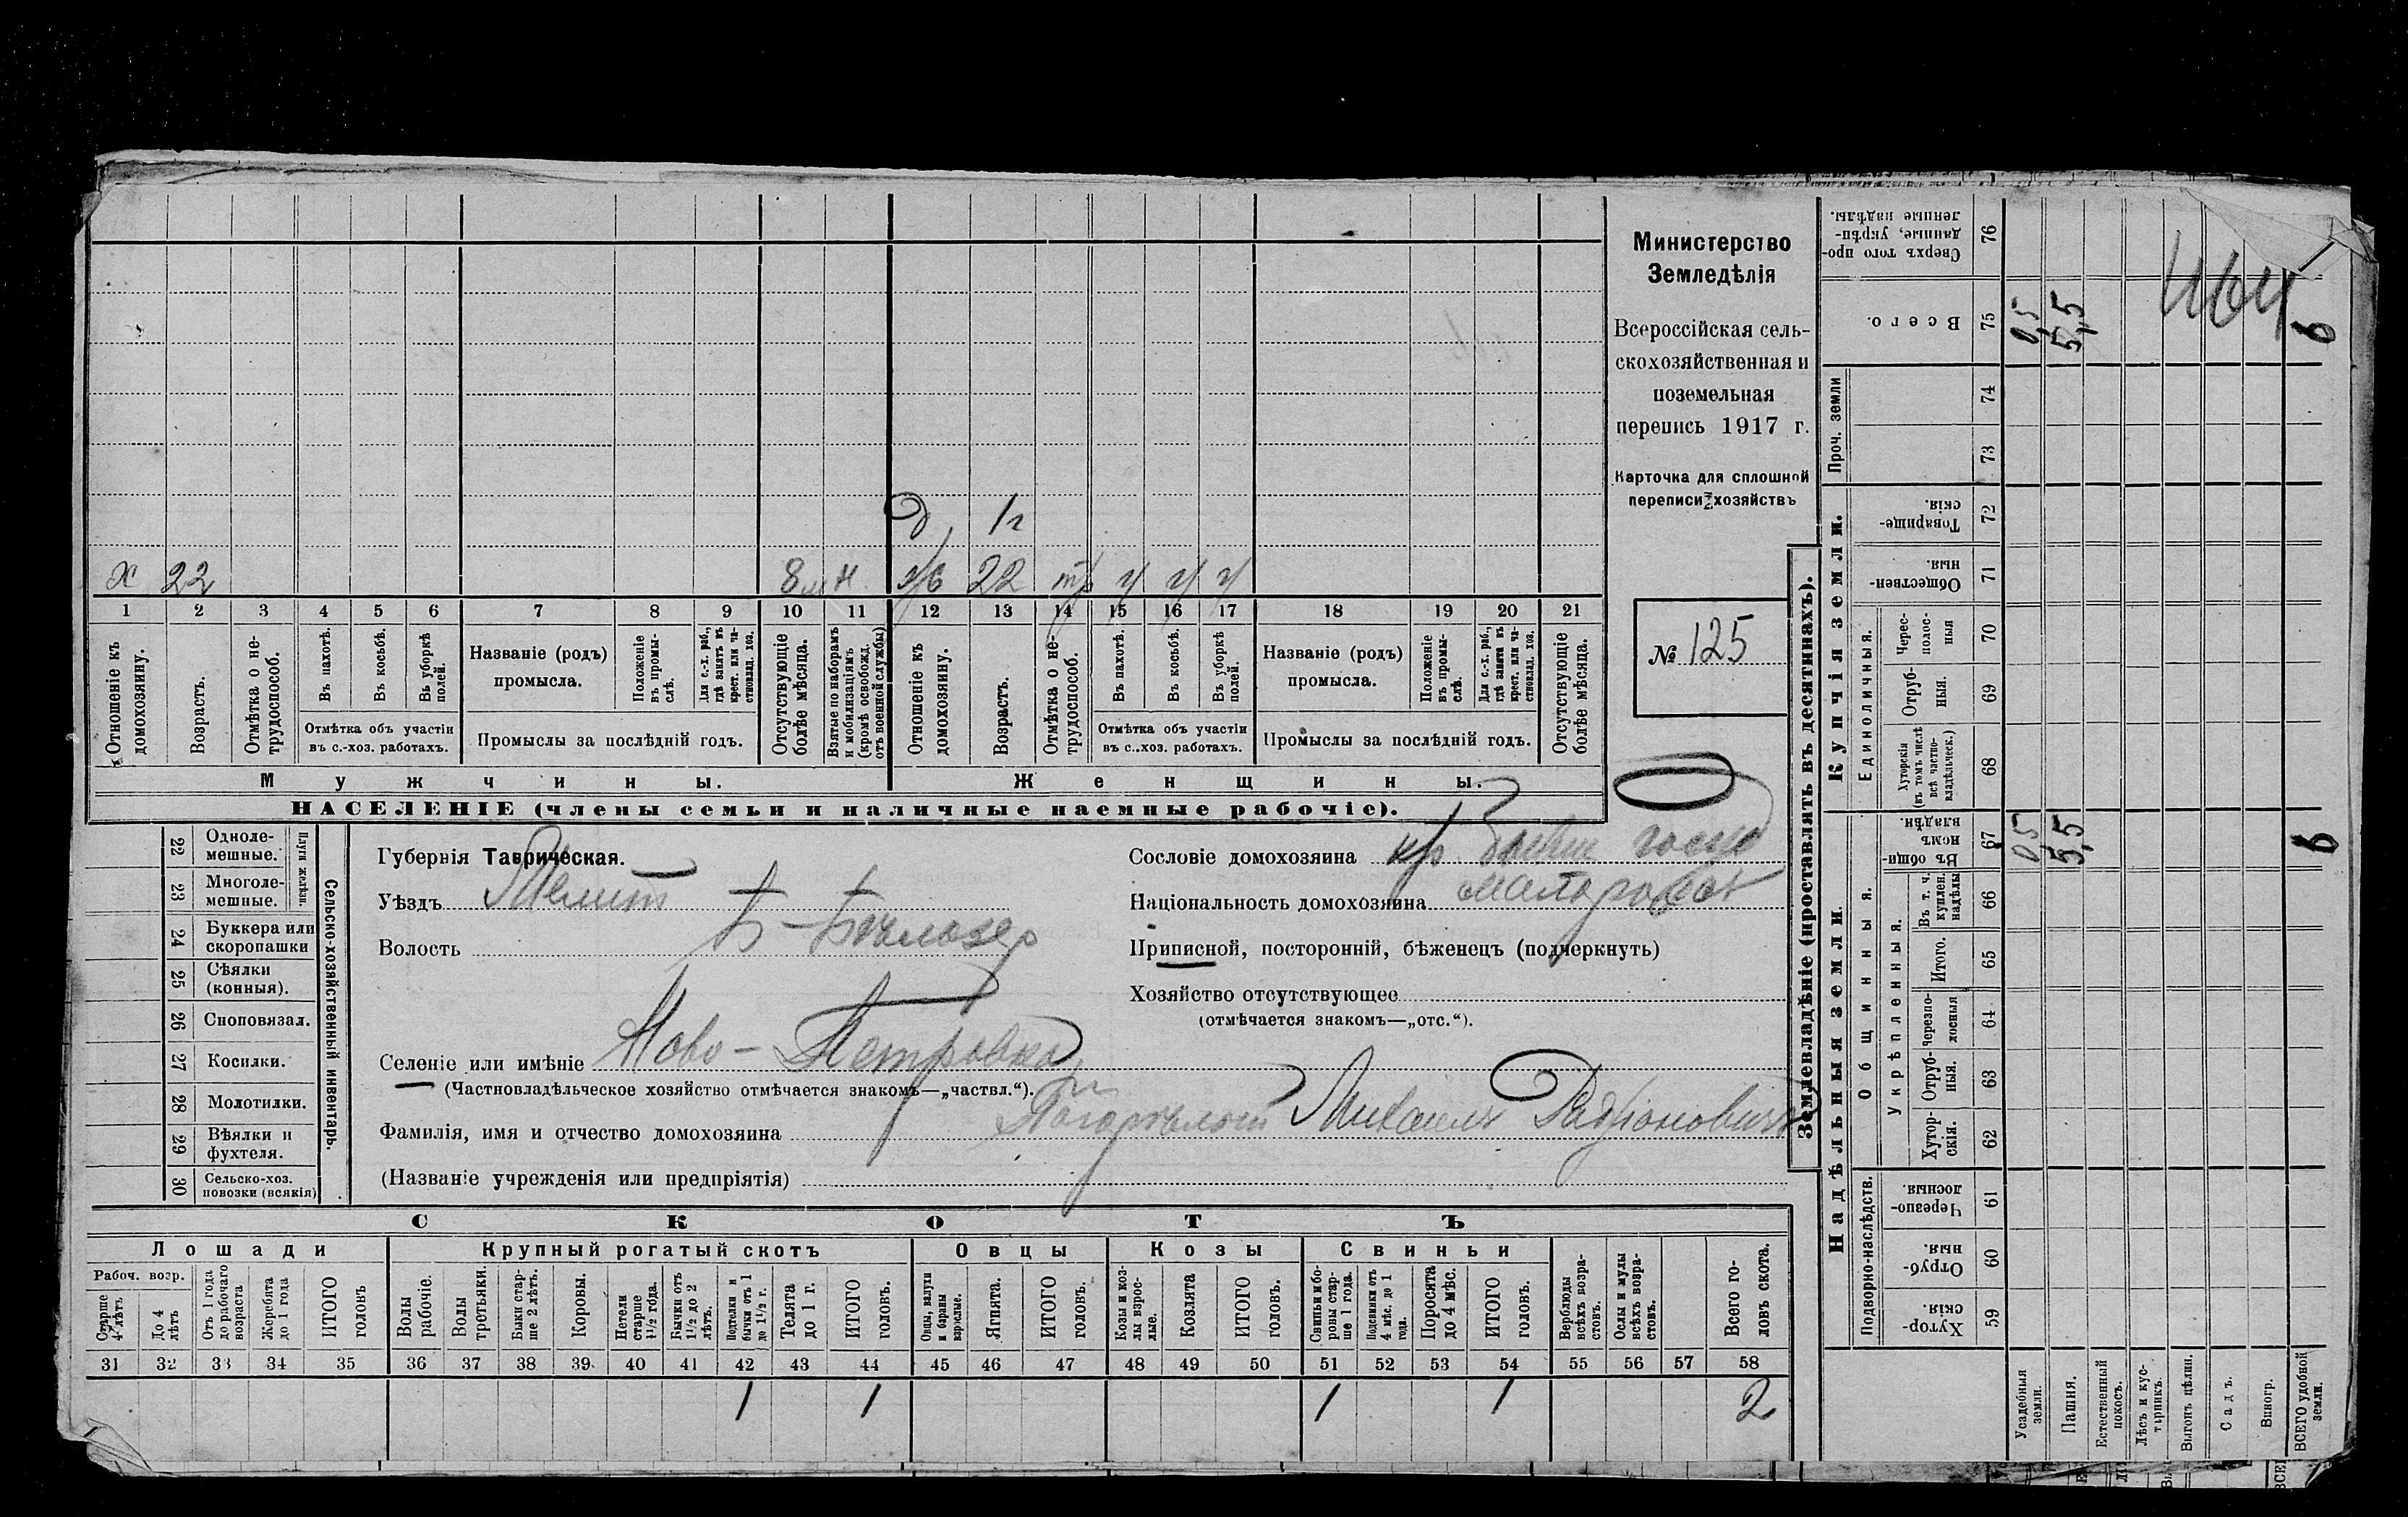 Министерство
Земледѣлія
Всероссійская сель-
скохозяйственная и
поземельная
перепись 1917 г.
Карточка для сплошной
переписи хозяйствъ
№ 125
д. 1г
х 22 8 м н 22 ч ч ч
1 2 3 4 5 6 7 8 9 10 11 12 13 14 15 16 17 18 19 20 21
Отношеніе къ домохозяину.
Возрастъ.
Отмѣтка о не-трудоспособ.
Въ пахотѣ.
Въ косьбѣ.
Въ уборкѣ полей.
Отмѣтка объ участіи
въ с.-хоз. работахъ.
Названіе (родъ)
промысла.
Положеніе въ промы-слѣ.
Для с.-х. раб., гдѣ занятъ въ крест. или ча-стновлад. хоз.
Промыслы за послѣдній годъ.
Отсутствующіе болѣе мѣсяца.
Взятые по наборамъ и мобилизаціямъ (кромѣ освобожд. отъ военной службы)
Отношеніе къ домохозяину.
Возрастъ.
Отмѣтка о не-трудоспособ.
Въ пахотѣ.
Въ косьбѣ.
Въ уборкѣ полей.
Отмѣтка объ участіи
въ с.-хоз. работахъ.
Названіе (родъ)
промысла.
Положеніе въ промы-слѣ.
Для с.-х. раб., гдѣ занята въ крест. или ча-стновлад. хоз.
Промыслы за послѣдній годъ.
Отсутствующіе болѣе мѣсяца.
Мужчины. Женщины.
НАСЕЛЕНІЕ (члены семьи и наличные наемные рабочіе).
22 Одноле-мешные.
23 Многоле-мешные.
Плуги желѣзн.
24 Буккера или скоропашки
25 Сѣялки (конныя).
26 Сноповязал.
27 Косилки.
28 Молотилки.
29 Вѣялки и фухтеля.
30 Сельско-хоз. повозки (всякія)
Сельско-хозяйственный инвентарь.
Губернія Таврическая.
Уѣздъ Мелит
Волость Б-Бѣлозер
Селеніе или имѣніе Ново-Петровка
(Частновладѣльческое хозяйство отмѣчается знакомъ—„частвл.“).
Фамилія, имя и отчество домохозяина Погорѣлый Михаилъ Радіоновичъ
(Названіе учрежденія или предпріятія)
Сословіе домохозяина кр. бывш госуд
Національность домохозяина малорос
Приписной, посторонній, бѣженецъ (подчеркнуть)
Хозяйство отсутствующее
(отмѣчается знакомъ—„отс.“).
СКОТЪ
Лошади Крупный рогатый скотъ Овцы Козы Свиньи
Рабоч. возр.
Старше 4 лѣтъ
До 4 лѣтъ
Отъ 1 года до рабочаго возраста
Жеребята до 1 года
ИТОГО головъ
Волы рабочіе.
Волы третьяки.
Быки стар-ше 2 лѣтъ.
Коровы.
Нетели старше 1½ года.
Бычки отъ 1½ до 2 лѣтъ.
Подтелки и бычки отъ 1 до 1½ г.
Телята до 1 г.
ИТОГО головъ.
Овцы, валухи и бараны взрослые.
Ягнята.
ИТОГО головъ.
Козы и коз-лы взрос-лые.
Козлята
ИТОГО головъ.
Свиньи и бо-ровы стар-ше 1 года.
Подсвинки отъ 4 мѣс. до 1 года.
Поросята до 4 мѣс.
ИТОГО головъ.
Верблюды всѣхъ возра-стовъ.
Ослы и мулы всѣхъ возра-стовъ.
Всего го-ловъ скота.
31 32 33 34 35 36 37 38 39 40 41 42 43 44 45 46 47 48 49 50 51 52 53 54 55 56 57 58
1 1 1 1 2
Землевладѣніе (проставлять въ десятинахъ).
Надѣльныя земли.
Купчія земли.
Проч. земли
Подворно-наслѣдств.
Общинныя.
Укрѣпленныя.
Единоличныя.
Сверхъ того про-данные, укрѣп-ленные надѣлы. 76
Всего. 75 0,5 5,5 6
74
73
Товарище-скія. 72
Обществен-ныя. 71
Черес-полос-ныя 70
Отруб-ныя. 69
Хуторскія (въ томъ числѣ всѣ частно-владѣльческ.) 68
Въ общин-номъ владѣн. 67 0,5 5,5 6
Въ т. ч. куплен. надѣлы 66
Итого. 65
черезпо-лосныя 64
Отруб-ныя. 63
Хутор-скія. 62
Черезпо-лосныя. 61
Отруб-ныя. 60
Хутор-скія. 59
Усадебныя земли.
Пашня.
Естественный покосъ.
Лѣсъ и кус-тарникъ.
Выгонъ цѣлин.
Садъ.
Виногр.
ВСЕГО удобной земли.